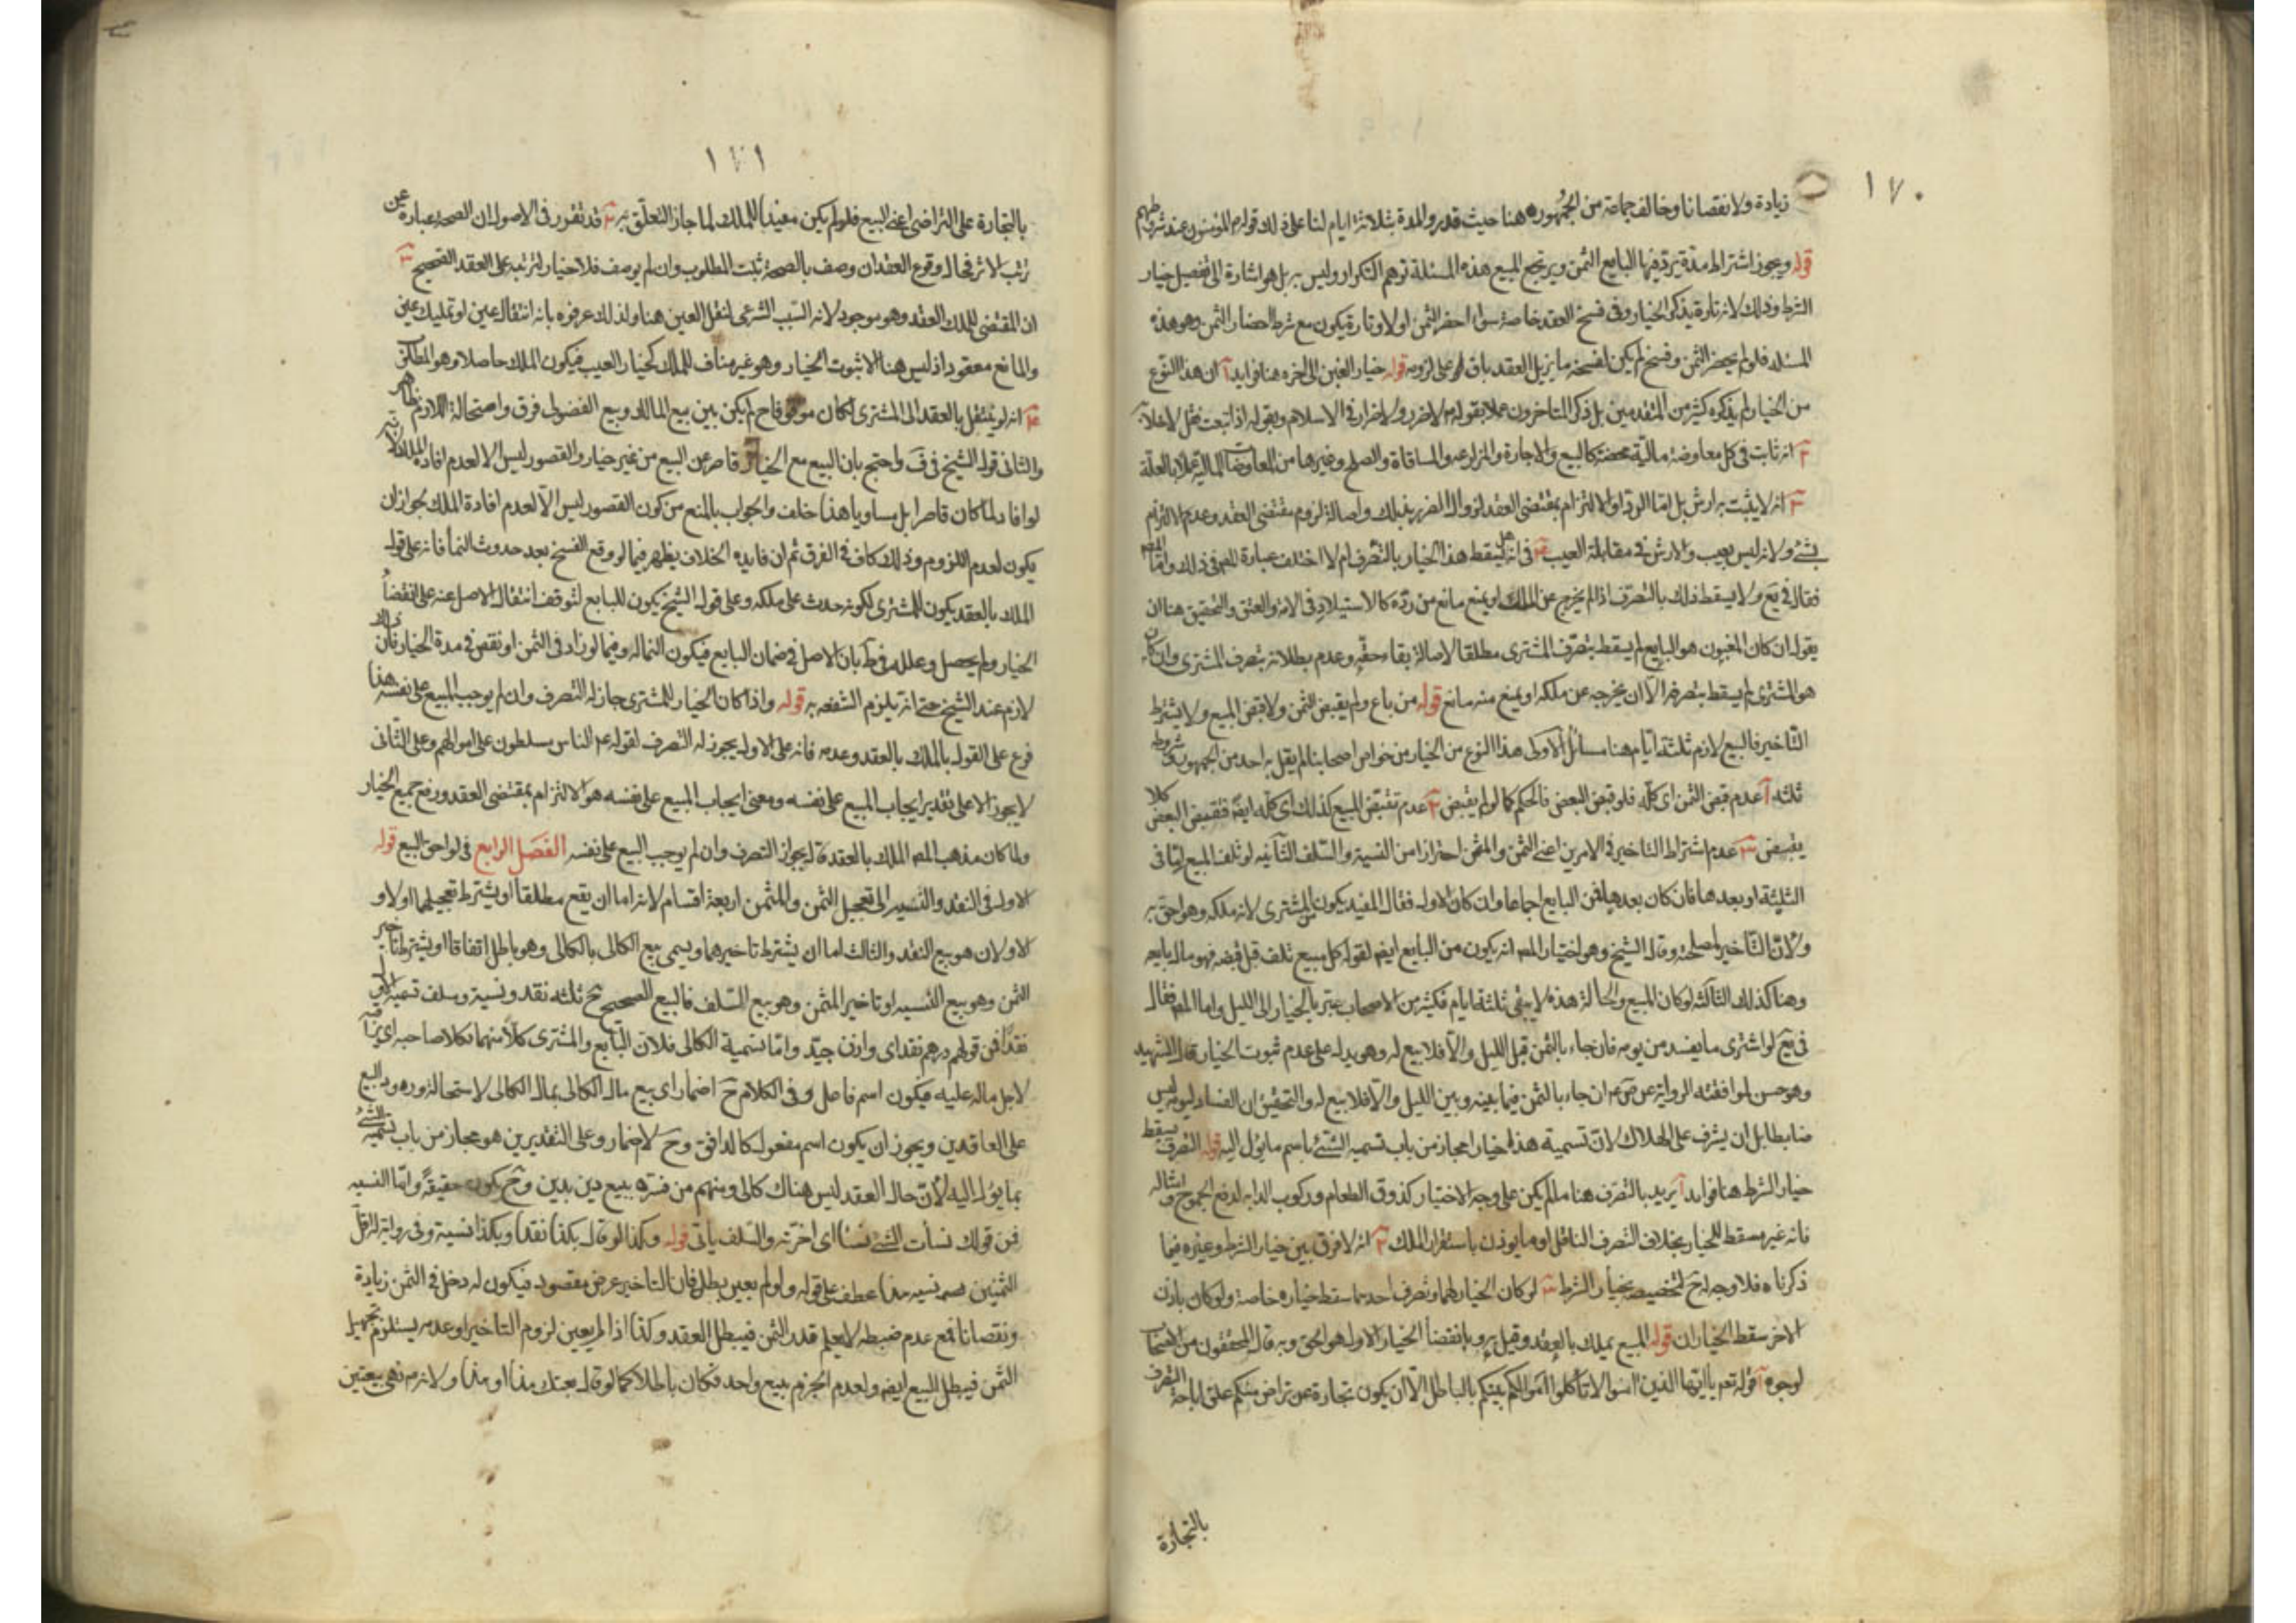 ١٧٠
زيادة ولا نقصانا وخالف جماعة من الجمهور هنا حيث قدروا المدة بثلاثة ايام لنا على ذلك قوله م المؤمنون عند شروطهم
قوله ويجوز اشتراط مدة يرد فيها البايع الثمن ويرتجع المبيع هذه المسئلة توهم التكرار وليس به بل هو اشارة الى تفصيل خيار
الشرط وذلك لانه تارة يذكر الخيار وفى فسخ العقد خاصة سواء احضر الثمن اولا وتارة يكون مع شرط احضار الثمن وهو هذه
المسئلة فلو لم يحضر الثمن وفسخ لم يكن لفسخه ما يزيل العقد باق على لزومه قوله خيار الغبن الى اخره هنا فوايد آ ان هذا النوع
من الخيار لم يذكره كثير من المتقدمين بل ذكره المتاخرون عملا بقوله م لا ضرر ولا ضرار فى الاسلام وبقوله اذا تبعت فقل لا خلابة
ب انه ثابت فى كل معاوضة مالية محضة كالبيع والاجارة والمزارعه والمساقاة والصلح وغيرها من المعاوضات المالية عملا بالعلة
انه لا يثبت به ارش بل اما الرد او الالتزام بمقتضى العقد لزوال الضرر بذلك واصالة لزوم مقتضى العقد وعدم الالتزام
بشئ ولانه ليس بعيب والارش فى مقابلة العيب فى انه هل يسقط هذا الخيار بالتصرف ام لا اختلف عبارة المص فى ذلك
فقال فى يع ولا يسقط ذلك بالتصرف اذا لم يخرج عن الملك او يمنع مانع من رده كالاستيلاد فى الامة والعتق والتحقيق هنا ان
يقول ان كان المغبون هو البايع لم يسقط بتصرف المشترى مطلقا لاصالة بقاء حقه وعدم بطلانه بتصرف المشترى وان كان
هو المشترى لم يسقط بتصرفه الا ان يخرجه عن ملكه او يمنع منه مانع قوله من باع ولم يقبض الثمن ولا قبض المبيع ولا يشترط
التاخير فالبيع لازم ثلثة ايام هنا مسائل الاولى هذا النوع من الخيار من خواص اصحابنا لم يقل به احد من الجمهور وشروطه
ثلثه آ عدم قبض الثمن اى كله فلو قبض البعض فالحكم كما لو لم يقبض ب عدم تقبيض المبيع كذلك اى كله ايضا فقبض البعض كلا
يقبض عدم اشتراط التاخير فى الامرين اعنى الثمن والمثمن احترازا من النسية والسلف الثانيه لو تلف المبيع اما فى
الثلثة او بعدها فان كان بعدها فمن البايع اجماعا وان كان الاول فقال المفيد يكون من المشترى لانه ملكه وهو احق به
ولان التاخير لمصلحته وقال الشيخ وهو اختيار المص انه يكون من البايع ايض لقوله كل مبيع تلف قبل قبضه فهو مال بايعه
وهنا كذلك الثالثه لو كان المبيع والحالة هذه لا يبقى ثلثة ايام فكثير من الاصحاب عبر بالخيار الى الليل واما المص فقال
فى يع لو اشترى ما يفسد من يومه فان جاء بالثمن قبل الليل والا فلا بيع له وهو يدل على عدم ثبوت الخيار قال الشهيد
وهو حسن لموافقته الرواية عن ص عه ان جاء بالثمن فيما بينه وبين الليل والا فلا بيع له والتحقيق ان الفساد ليومه ليس
ضابطا بل ان يشرف على الهلاك لان تسمية هذا خيار مجاز من باب تسميه الشئ باسم ما يؤل اليه قوله التصرف يسقط
خيار الشرط هنا فوايد آ يريد بالتصرف هنا ما لم يكن على وجه الاختيار كذوق الطعام وركوب الدابه لدفع الجموح وامثاله
فانه غير مسقط للخيار بخلاف التصرف الناقل او ما يوذن باستقرار الملك ب انه لا فرق بين خيار الشرط وغيره فيما
ذكرناه فلا وجه اذن لتخصيصه بخيار الشرط لو كان الخيار لهما وتصرف احدهما سقط خياره خاصة ولو كان باذن
الاخر سقط الخياران قوله المبيع يملك بالعقد وقيل به وبانقضاء الخيار الاول هو الحق وبه قال المحققون من اصحابنا
لوجوه آ قوله تعم ياايها الذين امنوا لا تاكلوا اموالكم بينكم بالباطل الا ان يكون تجارة عن تراض منكم علق اباحة التصرف
بالتجارة
١٧١
بالتجارة على التراضى اعنى البيع فلو لم يكن مفيدا للملك لما جاز التعلق به ب قد تقرر فى الاصول ان الصحة عبارة عن
ترتب الاثر فحال وقوع العقد ان وصف بالصحة ثبت المطلوب وان لم يوصف فلا خيار لترتبه على العقد الصحيح
ان المقتضى للملك العقد وهو موجود لانه السبب الشرعى لنقل العين هنا ولذلك عرفوه بانه انتقال عين او تمليك عين
والمانع مفقود اذ ليس هنا الا ثبوت الخيار وهو غير مناف للملك كخيار العيب فيكون الملك حاصلا وهو المطلوب
انه لو لم ينتقل بالعقد الى المشترى لكان موقوفا ح لم يكن بين بيع المالك وبيع الفضولى فرق واستحالة اللازم ظاهر
والثانى قول الشيخ فى ف واحتج بان البيع مع الخيار قاصر عن البيع من غير خيار والقصور ليس الا لعدم افادة الملك لانه
لو افاد لما كان قاصرا بل مساويا هذا خلف والجواب بالمنع من كون القصور ليس الا لعدم افادة الملك لجواز ان
يكون لعدم اللزوم وذلك كاف فى الفرق ثم ان فايدة الخلاف يظهر فيما لو وقع الفسخ بعد حدوث النماء فانه على قول
الملك بالعقد يكون للمشترى لكونه حدث على ملكه وعلى قول الشيخ يكون للبايع لتوقف انتقال الاصل عنه على انقضاء
الخيار ولم يحصل وعلله فى ط بان الاصل فى ضمان البايع فيكون النماء له وفيما لو زاد فى الثمن او نقص فى مدة الخيار فان ذلك
لازم عند الشيخ حتى انه يلزم الشفعه به قوله واذا كان الخيار للمشترى جاز له التصرف وان لم يوجب البيع على نفسه هذا
فرع على القول بالملك بالعقد وعدمه فانه على الاول يجوز له التصرف لقوله عم الناس مسلطون على اموالهم وعلى الثانى
لا يجوز الا على تقدير ايجاب المبيع على نفسه ومعنى ايجاب المبيع على نفسه هو الالتزام بمقتضى العقد ورفع جميع الخيار
ولما كان مذهب المص الملك بالعقد قال يجوز التصرف وان لم يوجب البيع على نفسه الفصل الرابع فى لواحق البيع قوله
الاول فى النقد والنسيه الى تعجيل الثمن والمثمن اربعة اقسام لانه اما ان يقع مطلقا او يشترط تعجيلهما اولا و
الاولان هو بيع النقد والثالث اما ان يشترط تاخيرهما ويسمى بيع الكالى بالكالى وهو باطل اتفاقا او يشترط تاخير
الثمن وهو بيع النسيه او تاخير المثمن وهو بيع السلف فالبيع الصحيح ح ثلثه نقد ونسية وسلف تسمية الاول
نقدا من قولهم درهم نقد اى وازن جيد واما تسمية الكالى فلان البايع والمشترى كلا منهما يكلا صاحبه اى يراقبه
لاجل ماله عليه فيكون اسم فاعل وفى الكلام ح اضمار اى بيع مال الكالى بمال الكالى لاستحالة ورود البيع
على العاقدين ويجوز ان يكون اسم مفعول كالدافق وح لا اضمار وعلى التقديرين هو مجاز من باب تسمية الشئ
بما يؤل اليه لان حال العقد ليس هناك كالى ومنهم من فسره ببيع دين بدين وح يكون حقيقة واما النسيه
فمن قولك نسأت الشئ نسئا اى اخرته والسلف ياتى قوله وكذا لو قال بكذا نقدا وبكذا نسية وفى رواية له اقل
الثمنين نسيه هذا عطف على قوله ولو لم يعين بطل فان التاخير عرض مقصود فيكون له دخل فى الثمن زيادة
ونقصانا فمع عدم ضبطه لا يعلم قدر الثمن فيبطل العقد وكذا اذا لم يعين لزوم التاخير او عدمه يستلزم تجهيل
الثمن فيبطل البيع ايضا ولعدم الجزم ببيع واحد فكان باطلا كما لو قال بعتك هذا او هذا ولانه م نهى بيعتين